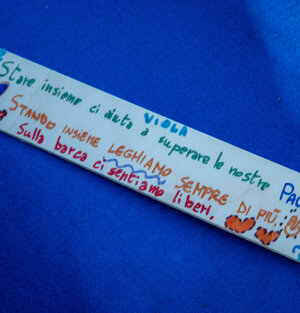 VIOLA
Stare insieme ci aiuta a superare le nostre
STANDO INSIEME LEGHIAMO SEMPRE DI PIÙ
Sulla barca ci sentiamo liberi.